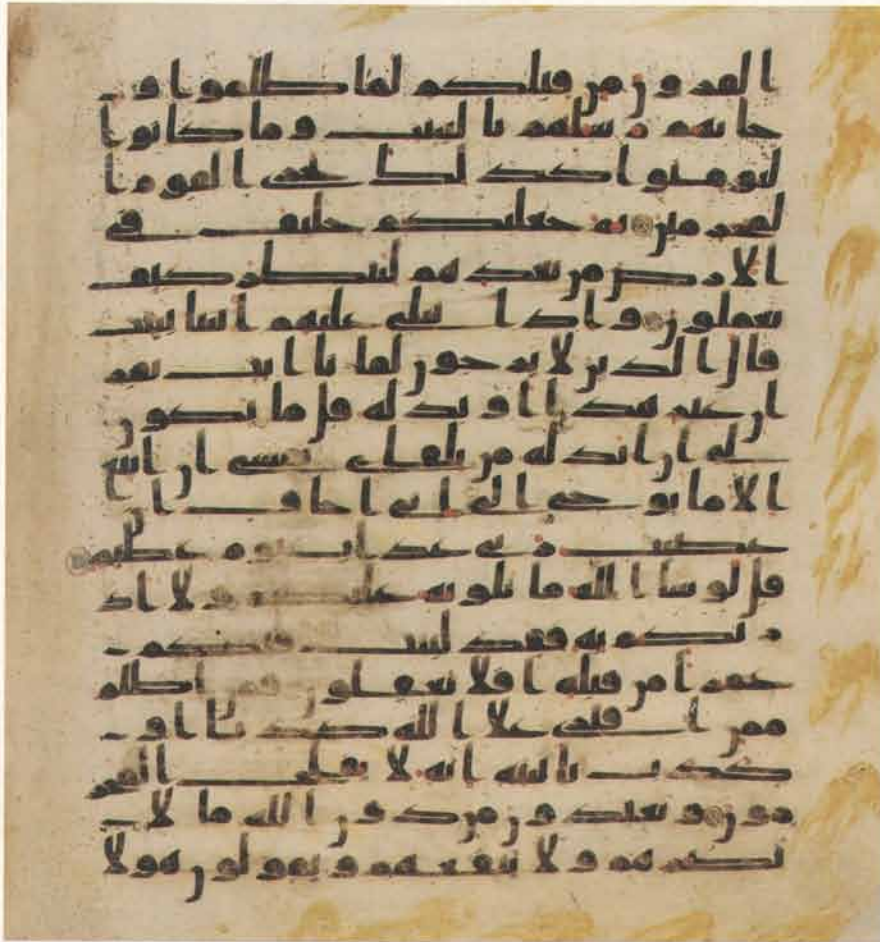 القرون من قبلكم لما ظلموا و
جاتهم رسلهم بالبينت وما كانوا
ليومنوا كذلك نجزي القوم ا
لمجرمين ثم جعلنكم خليف في
الارض من بعدهم لننظر كيف
تعملون واذا تتلى عليهم اياتنا بينت
قال الذين لا يرجون لقانا ايت بقر
ان غير هذا او بدله قل ما يكون
لي ان ابدله من تلقاي نفسي ان اتبع
الا ما يوحى الي اني اخاف ان
عصيت ربي عذاب يوم عظيم
قل لو شا الله ما تلوته عليكم ولا اد
ريكم به فقد لبثت فيكم
عمرا من قبله افلا تعقلون فمن اظلم
ممن افترى علا الله كذبا او
كذب بايته انه لا يفلح المجر
مون ويعبدون من دون الله ما لا
يضرهم ولا ينفعهم ويقولون هولا